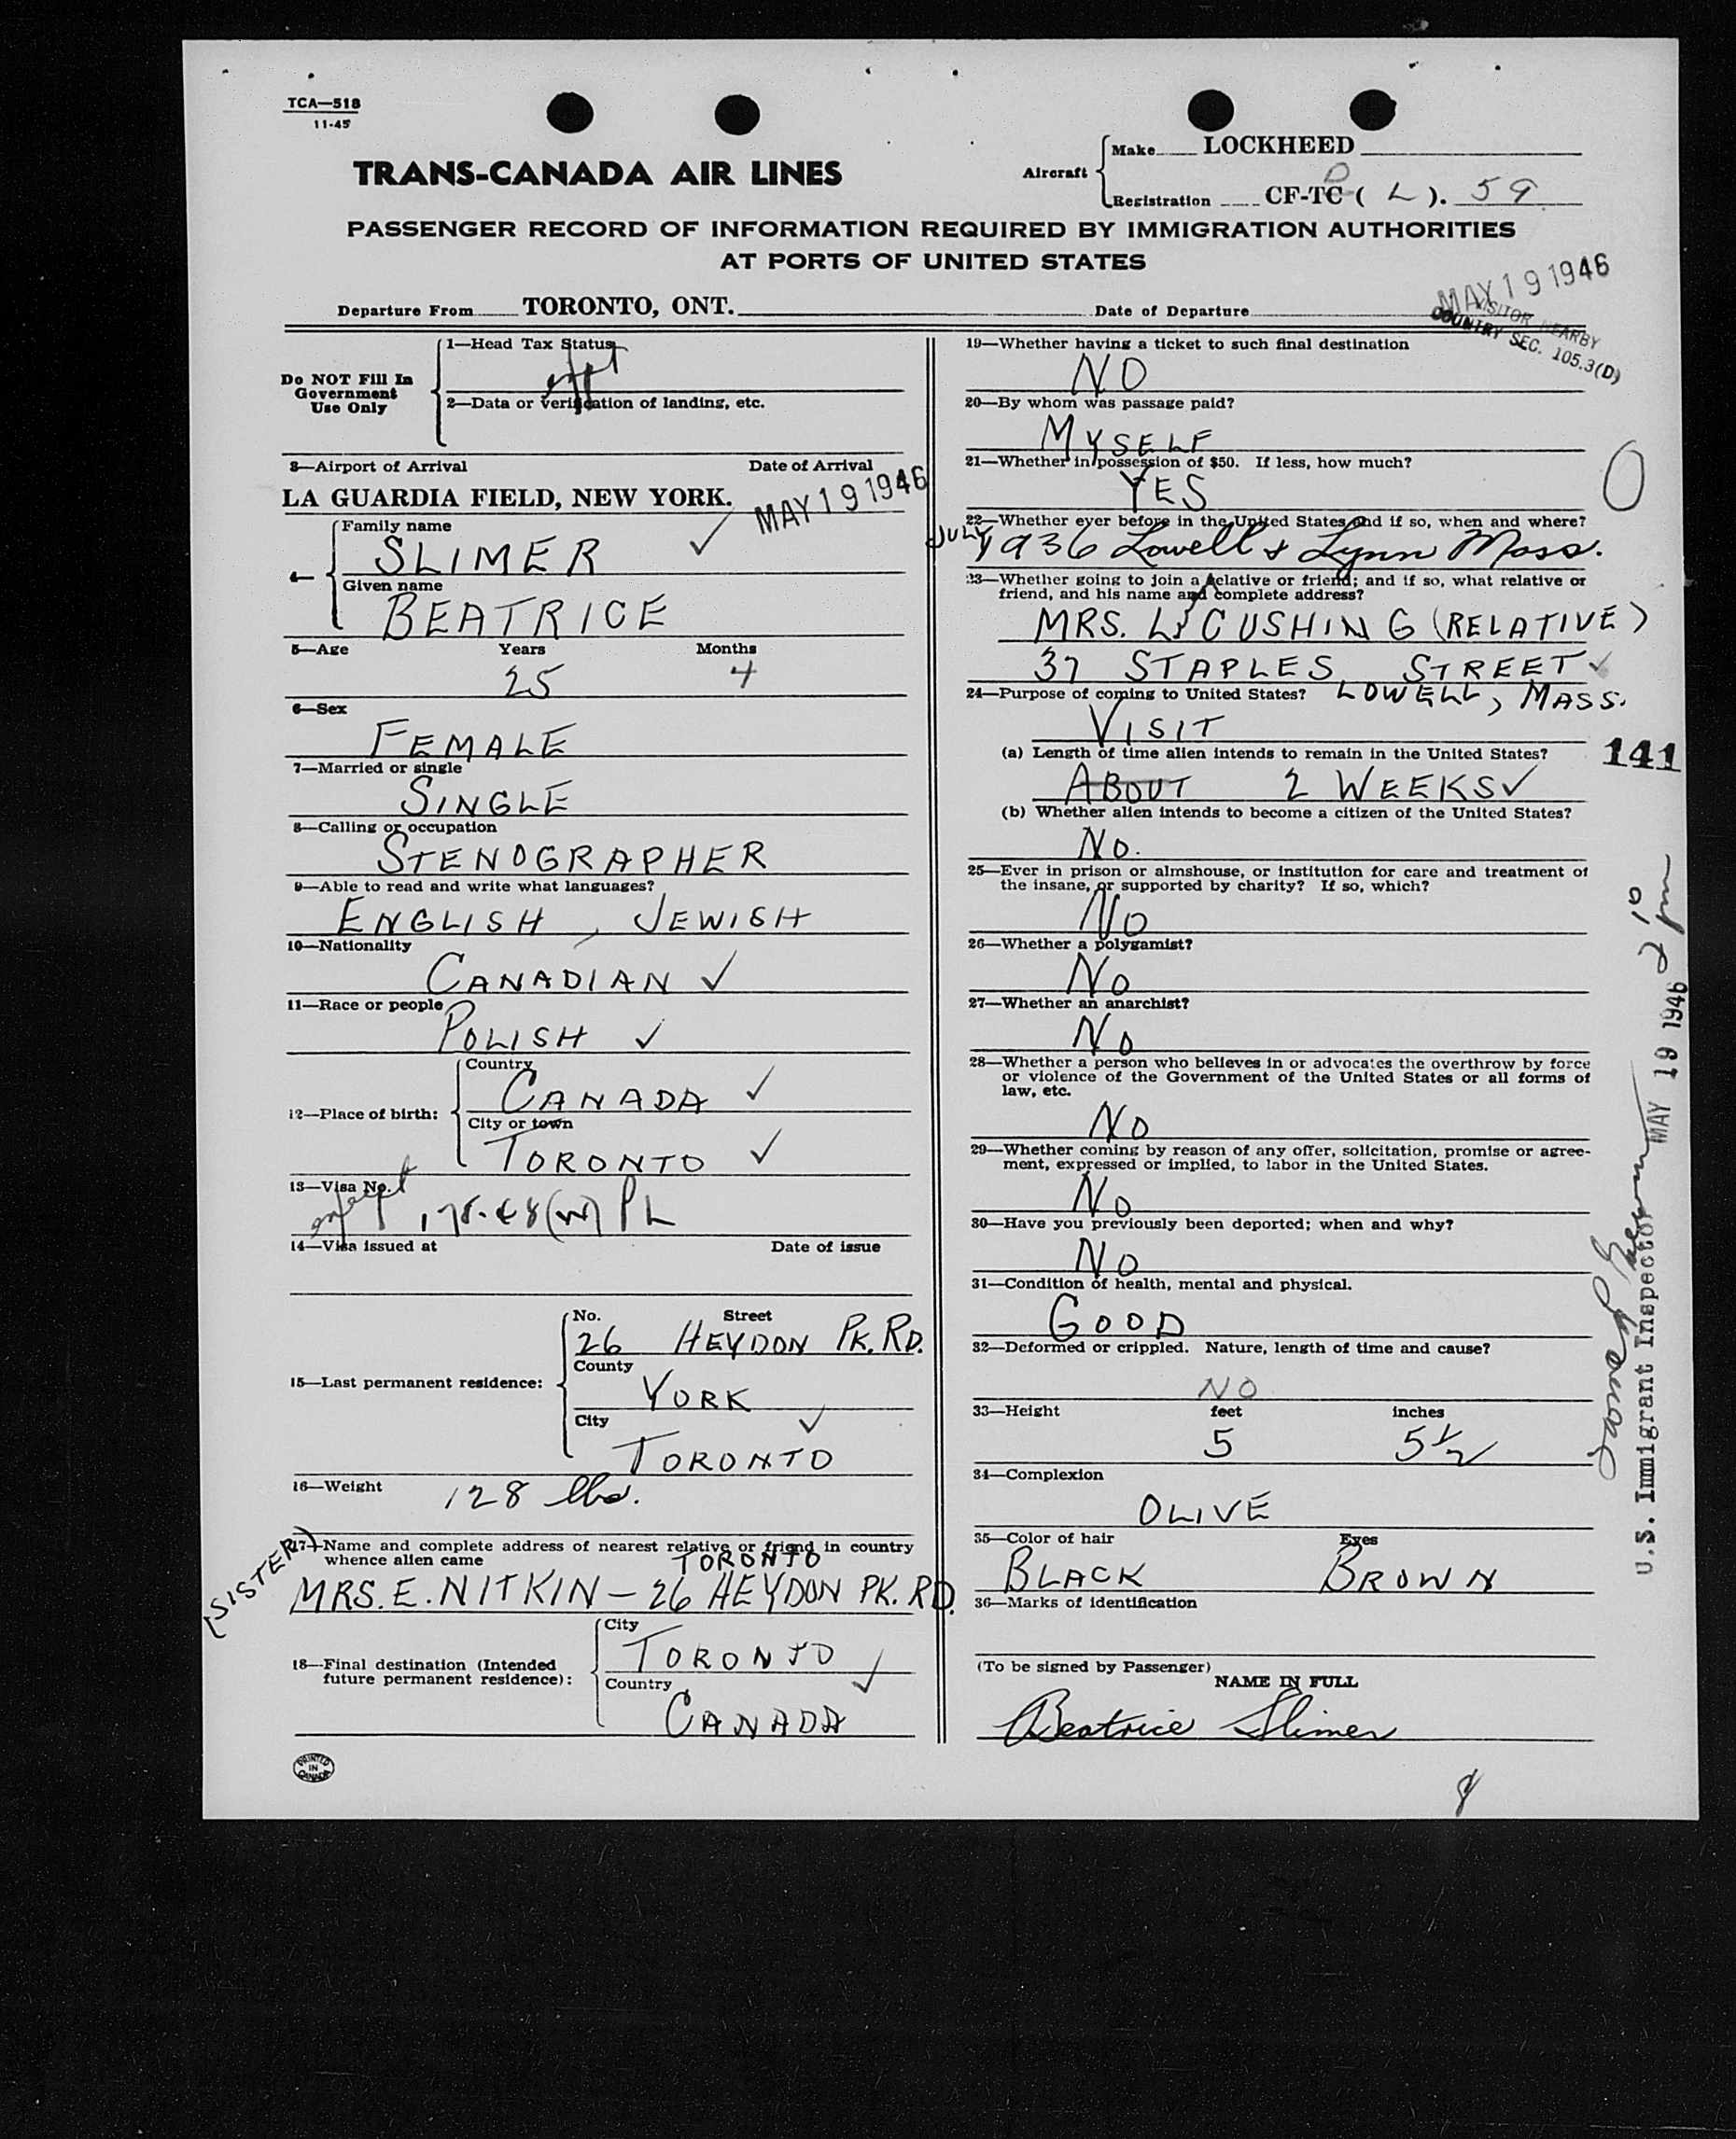 TCA—518
11-45
TRANS-CANADA AIR LINES
Aircraft
Make LOCKHEED
Registration CF-TC ( L ). 59
PASSENGER RECORD OF INFORMATION REQUIRED BY IMMIGRATION AUTHORITIES
AT PORTS OF UNITED STATES
Departure From TORONTO, ONT. Date of Departure MAY 19 1946
VISITOR NEARBY
COUNTRY SEC. 105.3(D)
Do NOT Fill In
Government
Use Only
1—Head Tax Status
2—Data or verification of landing, etc.
3—Airport of Arrival Date of Arrival
LA GUARDIA FIELD, NEW YORK. MAY 19 1946
4—
Family name
SLIMER ✓
Given name
BEATRICE
5—Age Years Months
25 4
6—Sex
FEMALE
7—Married or single
SINGLE
8—Calling or occupation
STENOGRAPHER
9—Able to read and write what languages?
ENGLISH, JEWISH
10—Nationality
CANADIAN ✓
11—Race or people
POLISH ✓
12—Place of birth:
Country
CANADA ✓
City or town
TORONTO ✓
13—Visa No.
14—Visa issued at Date of issue
15—Last permanent residence:
No. Street
26 HEYDON PK. RD.
County
YORK
City ✓
TORONTO
16—Weight 128 lbs.
17—Name and complete address of nearest relative or friend in country
whence alien came TORONTO
(SISTER)
MRS. E. NITKIN — 26 HEYDON PK. RD.
18—Final destination (Intended
future permanent residence):
City
TORONTO ✓
Country
CANADA
PRINTED
IN
CANADA
19—Whether having a ticket to such final destination
NO
20—By whom was passage paid?
MYSELF
21—Whether in possession of $50. If less, how much?
YES
0
22—Whether ever before in the United States and if so, when and where?
JULY 1936 Lowell & Lynn Mass.
23—Whether going to join a relative or friend; and if so, what relative or
friend, and his name and complete address?
MRS. L. CUSHING (RELATIVE)
37 STAPLES STREET ✓
24—Purpose of coming to United States? LOWELL, MASS.
VISIT
(a) Length of time alien intends to remain in the United States?
ABOUT 2 WEEKS ✓
141
(b) Whether alien intends to become a citizen of the United States?
NO.
25—Ever in prison or almshouse, or institution for care and treatment of
the insane, or supported by charity? If so, which?
NO
26—Whether a polygamist?
NO
27—Whether an anarchist?
NO
28—Whether a person who believes in or advocates the overthrow by force
or violence of the Government of the United States or all forms of
law, etc.
NO
29—Whether coming by reason of any offer, solicitation, promise or agree-
ment, expressed or implied, to labor in the United States.
NO
30—Have you previously been deported; when and why?
NO
31—Condition of health, mental and physical.
GOOD
32—Deformed or crippled. Nature, length of time and cause?
NO
33—Height feet inches
5 5½
34—Complexion
OLIVE
35—Color of hair Eyes
BLACK BROWN
36—Marks of identification
(To be signed by Passenger)
NAME IN FULL
Beatrice Slimer
MAY 19 1946 2 10 pm
U.S. Immigrant Inspector